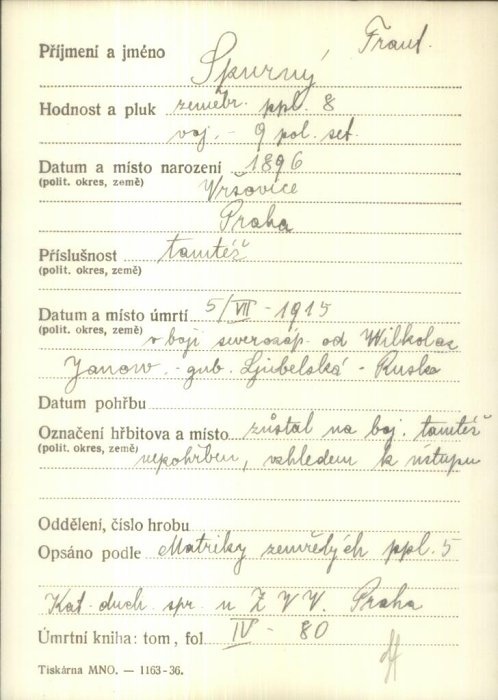 Příjmení a jméno Spurný, Frant.
Hodnost a pluk zeměbr. ppl. 8
voj. - 9 pol. set.
Datum a místo narození 1896
(polit. okres, země) Vršovice
Praha
Příslušnost tamtéž
(polit. okres, země)
Datum a místo úmrtí 5/VII - 1915
(polit. okres, země) v boji severozáp. od Wilkolaz
Janow - gub. Ljubelská - Rusko
Datum pohřbu
Označení hřbitova a místo zůstal na boj. tamtéž
(polit. okres, země) nepohřben, vzhledem k ústupu
Oddělení, číslo hrobu
Opsáno podle Matriky zemřelých ppl. 5
Kat. duch. spr. u Z V V. Praha
Úmrtní kniha: tom, fol. IV - 80
Tiskárna MNO. — 1163-36.